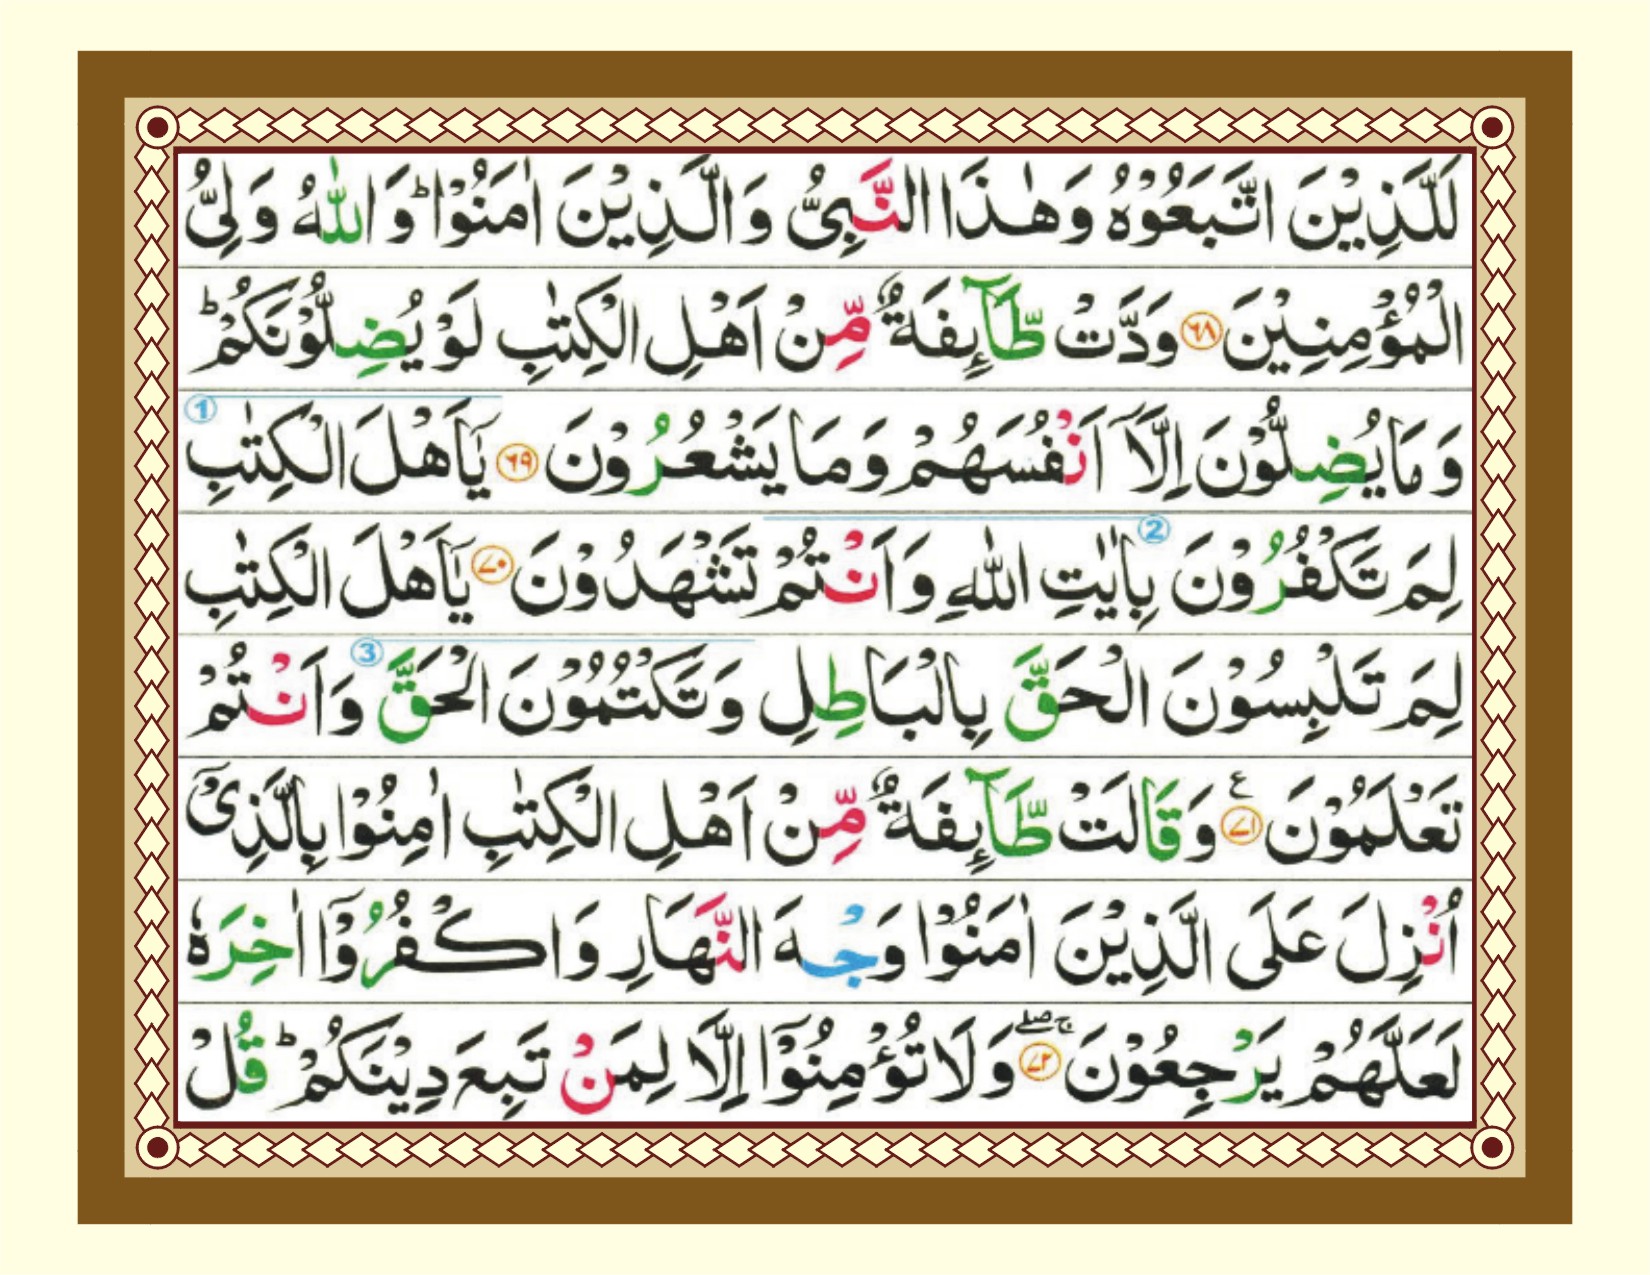 لَلَّذِيْنَ اتَّبَعُوْهُ وَهٰذَا النَّبِىُّ وَالَّذِيْنَ اٰمَنُوْا ؕ وَاللّٰهُ وَلِىُّ
الْمُؤْمِنِيْنَ ۶۸ وَدَّتْ طَّآىِٕفَةٌ مِّنْ اَهْلِ الْكِتٰبِ لَوْ يُضِلُّوْنَكُمْ ؕ
وَمَا يُضِلُّوْنَ اِلَّاۤ اَنْفُسَهُمْ وَمَا يَشْعُرُوْنَ ۶۹ يٰۤاَهْلَ الْكِتٰبِ ①
لِمَ تَكْفُرُوْنَ ② بِاٰيٰتِ اللّٰهِ وَاَنْتُمْ تَشْهَدُوْنَ ۷۰ يٰۤاَهْلَ الْكِتٰبِ
لِمَ تَلْبِسُوْنَ الْحَقَّ بِالْبَاطِلِ وَتَكْتُمُوْنَ الْحَقَّ ③ وَاَنْتُمْ
تَعْلَمُوْنَ ۷۱ ع وَقَالَتْ طَّآىِٕفَةٌ مِّنْ اَهْلِ الْكِتٰبِ اٰمِنُوْا بِالَّذِىْۤ
اُنْزِلَ عَلَى الَّذِيْنَ اٰمَنُوْا وَجْهَ النَّهَارِ وَاكْفُرُوْۤا اٰخِرَهٗ
لَعَلَّهُمْ يَرْجِعُوْنَ ۷۲ ج صلے وَلَا تُؤْمِنُوْۤا اِلَّا لِمَنْ تَبِعَ دِيْنَكُمْ ؕ قُلْ